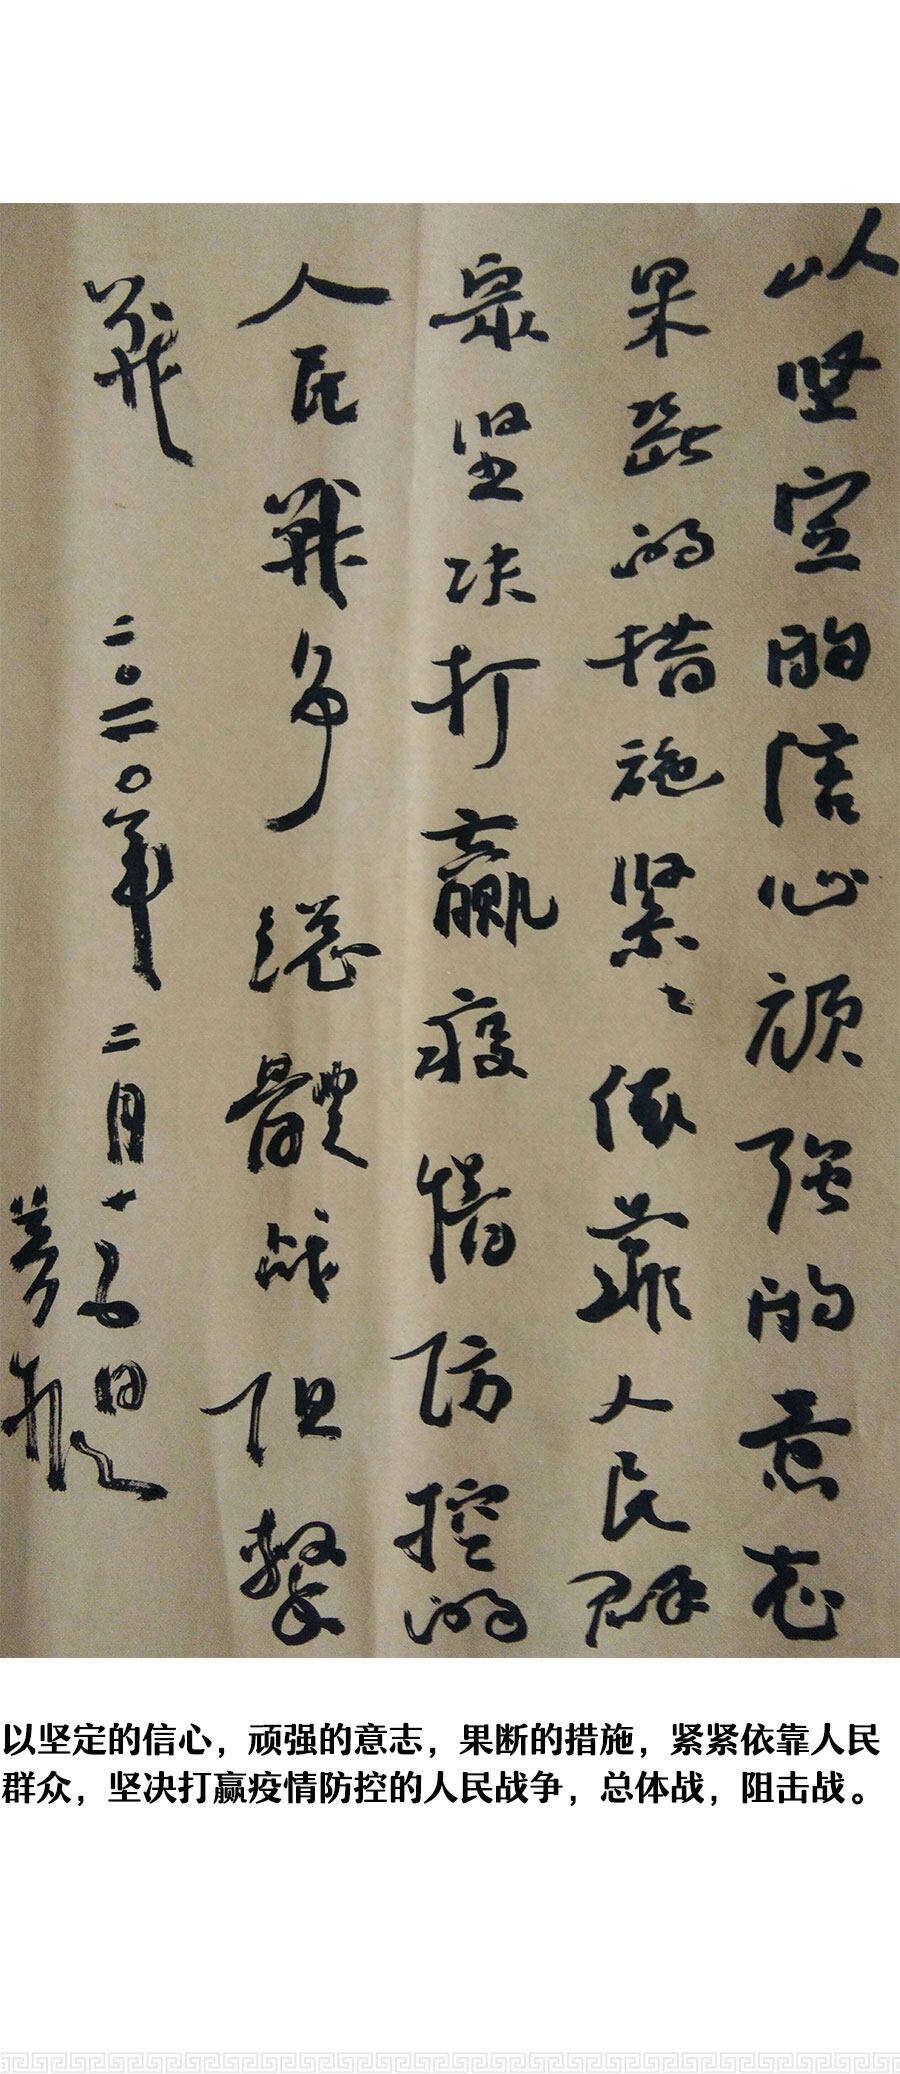 以坚定的信心顽强的意志
果断的措施紧々依靠人民群
众坚决打赢疫情防控的
人民戰争總體战阻擊
戰
二〇二〇年二月十
日
以坚定的信心，顽强的意志，果断的措施，紧紧依靠人民
群众，坚决打赢疫情防控的人民战争，总体战，阻击战。